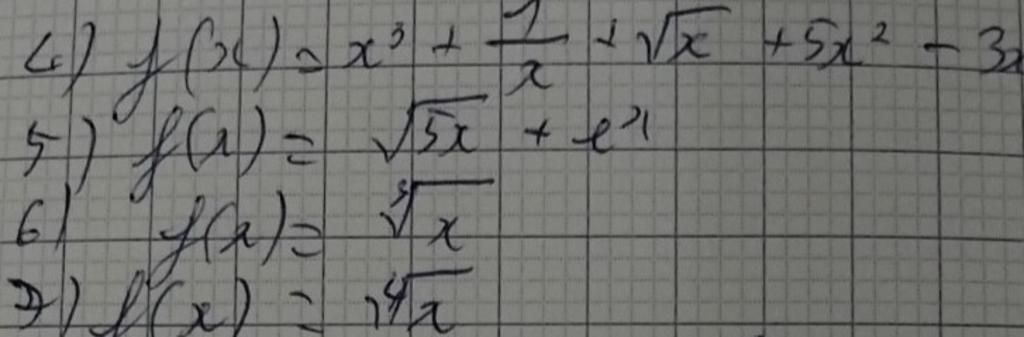 4) f(x) = x³ + 1/x + √x + 5x² - 3x
5) f(x) = √5x + eˣ
6) f(x) = ∛x
7) f(x) = ∜x